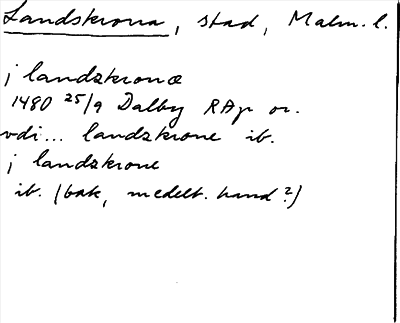 Landskrona, stad, Malm. l.
j landzkronæ
1480 25/9 Dalby RAp or.
vdi... landzkrone ib.
j landzkrone
ib. (bak, medelt. hand?)